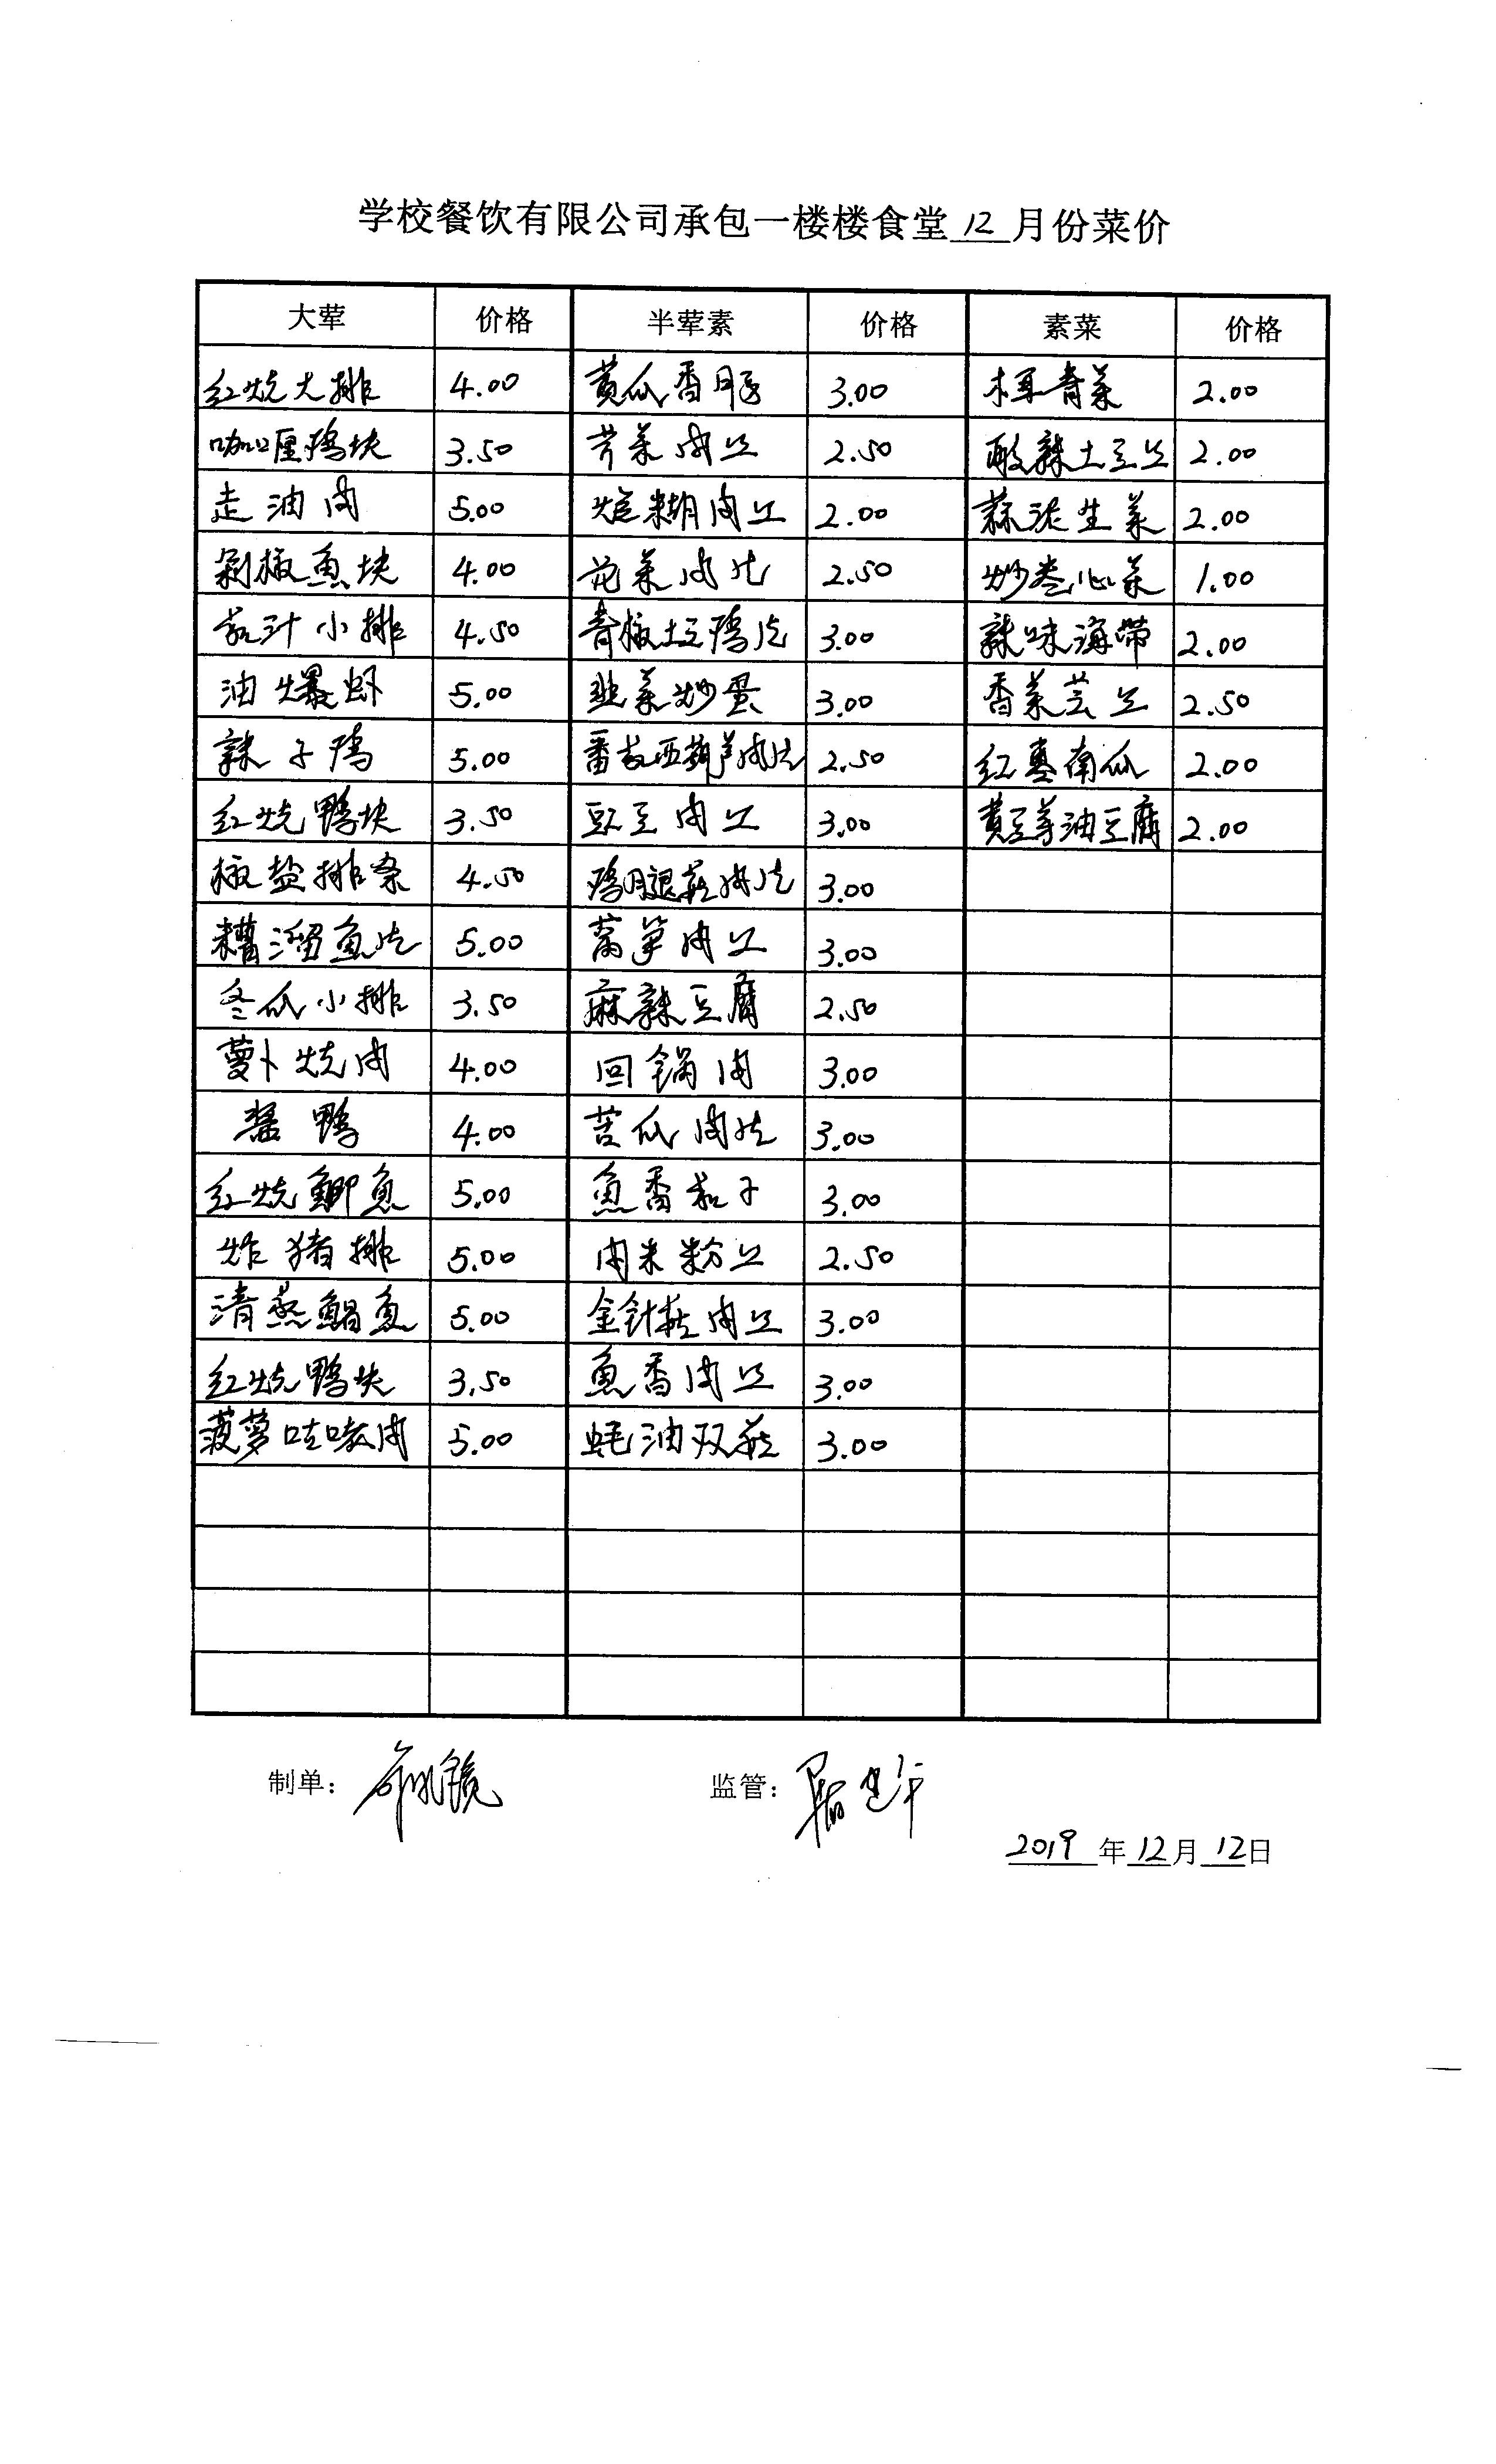 学校餐饮有限公司承包一楼楼食堂12月份菜价
大荤 价格 半荤素 价格 素菜 价格
红烧大排 4.00 黄瓜香肠 3.00 木耳青菜 2.00
咖喱鸡块 3.50 芹菜肉丝 2.50 酸辣土豆丝 2.00
走油肉 5.00 糊肉丝 2.00 蒜泥生菜 2.00
剁椒鱼块 4.00 花菜肉片 2.50 炒卷心菜 1.00
茄汁小排 4.50 青椒土豆鸡片 3.00 辣味海带 2.00
油爆虾 5.00 韭菜炒蛋 3.00 香菜芸丝 2.50
辣子鸡 5.00 番茄西葫芦肉片 2.50 红枣南瓜 2.00
红烧鸭块 3.50 豇豆肉丝 3.00 黄豆芽油豆腐 2.00
椒盐排条 4.50 鸡腿菇肉片 3.00
糟溜鱼片 5.00 莴笋肉丝 3.00
冬瓜小排 3.50 麻辣豆腐 2.50
萝卜烧肉 4.00 回锅肉 3.00
酱鸭 4.00 苦瓜肉片 3.00
红烧鲫鱼 5.00 鱼香茄子 3.00
炸猪排 5.00 肉米粉丝 2.50
清蒸鲳鱼 5.00 金针菇肉丝 3.00
红烧鸭块 3.50 鱼香肉丝 3.00
菠萝咕咾肉 5.00 蚝油双菇 3.00
制单: 监管:
2019年12月12日